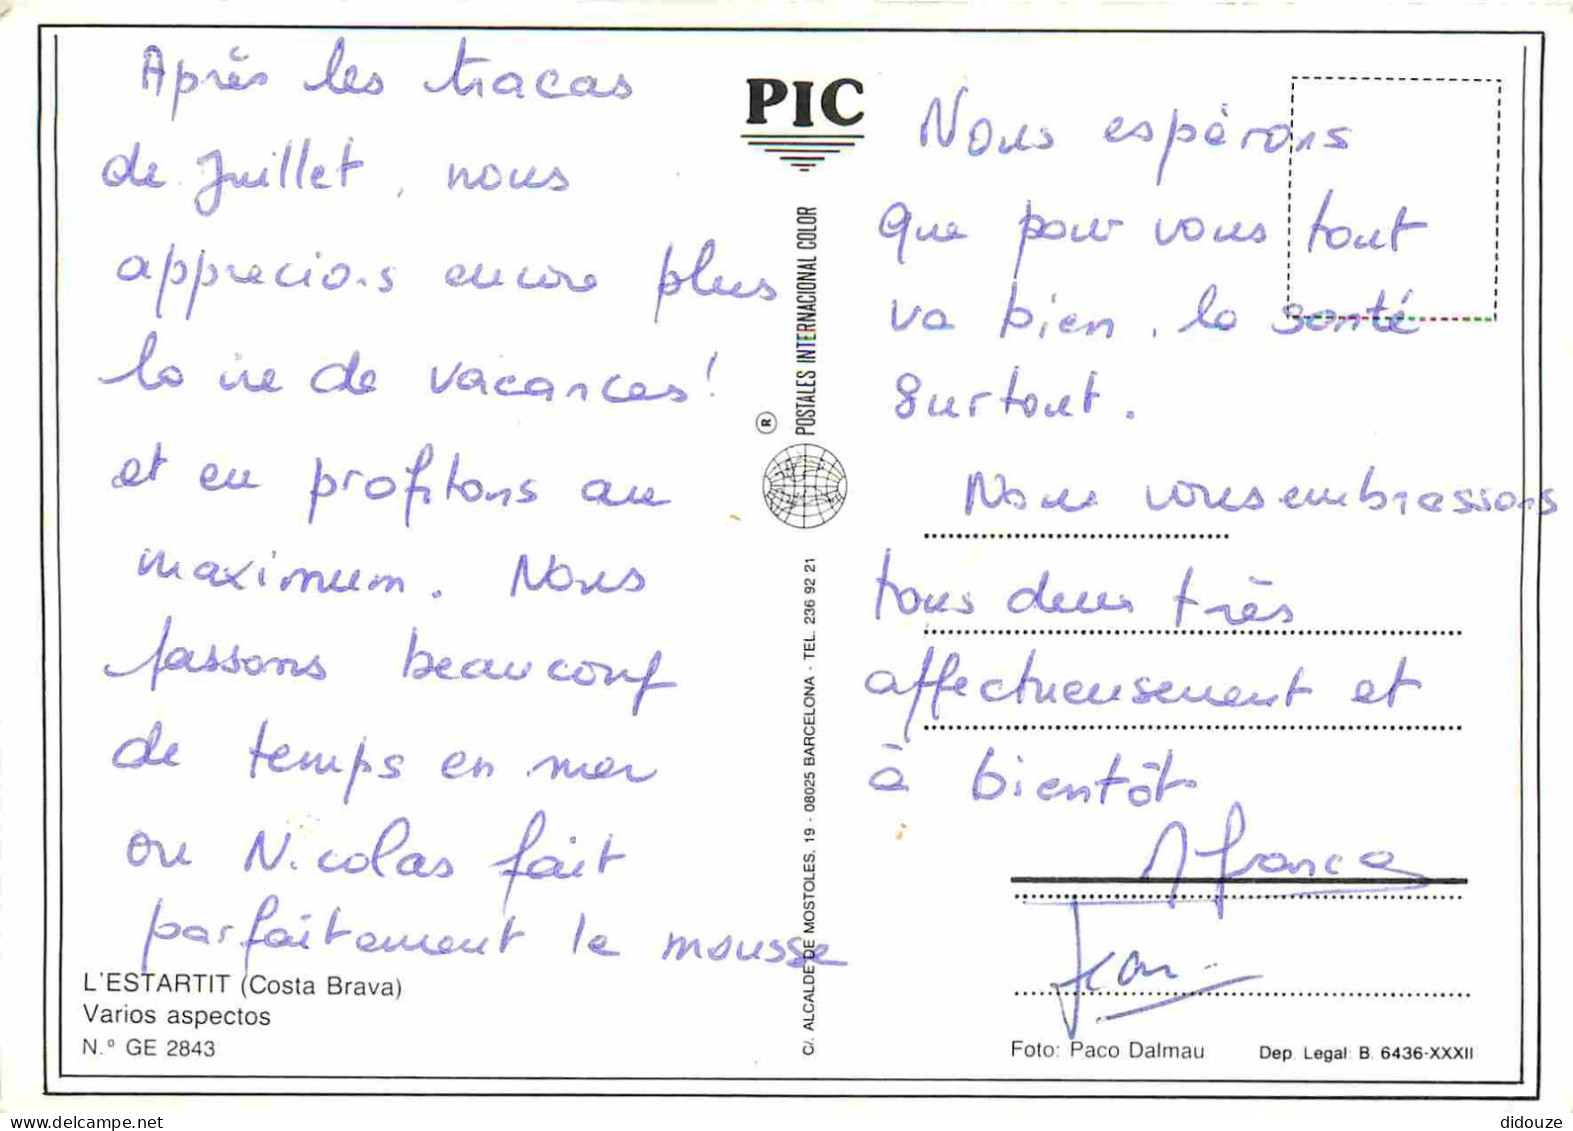 Après les tracas
de Juillet, nous
apprecions encore plus
la vie de vacances!
et en profitons au
maximum. Nous
passons beaucoup
de temps en mer
ou Nicolas fait
parfaitement le mousse
L'ESTARTIT (Costa Brava)
Varios aspectos
N.º GE 2843
PIC
POSTALES INTERNACIONAL COLOR
®
C/. ALCALDE DE MOSTOLES, 19 - 08025 BARCELONA - TEL. 236 92 21
Nous espérons
que pour vous tout
va bien, la santé
surtout.
Nous vous embrassons
tous deux très
affectueusement et
à bientôt
France
Jean
Foto: Paco Dalmau
Dep. Legal: B. 6436-XXXII
didouze